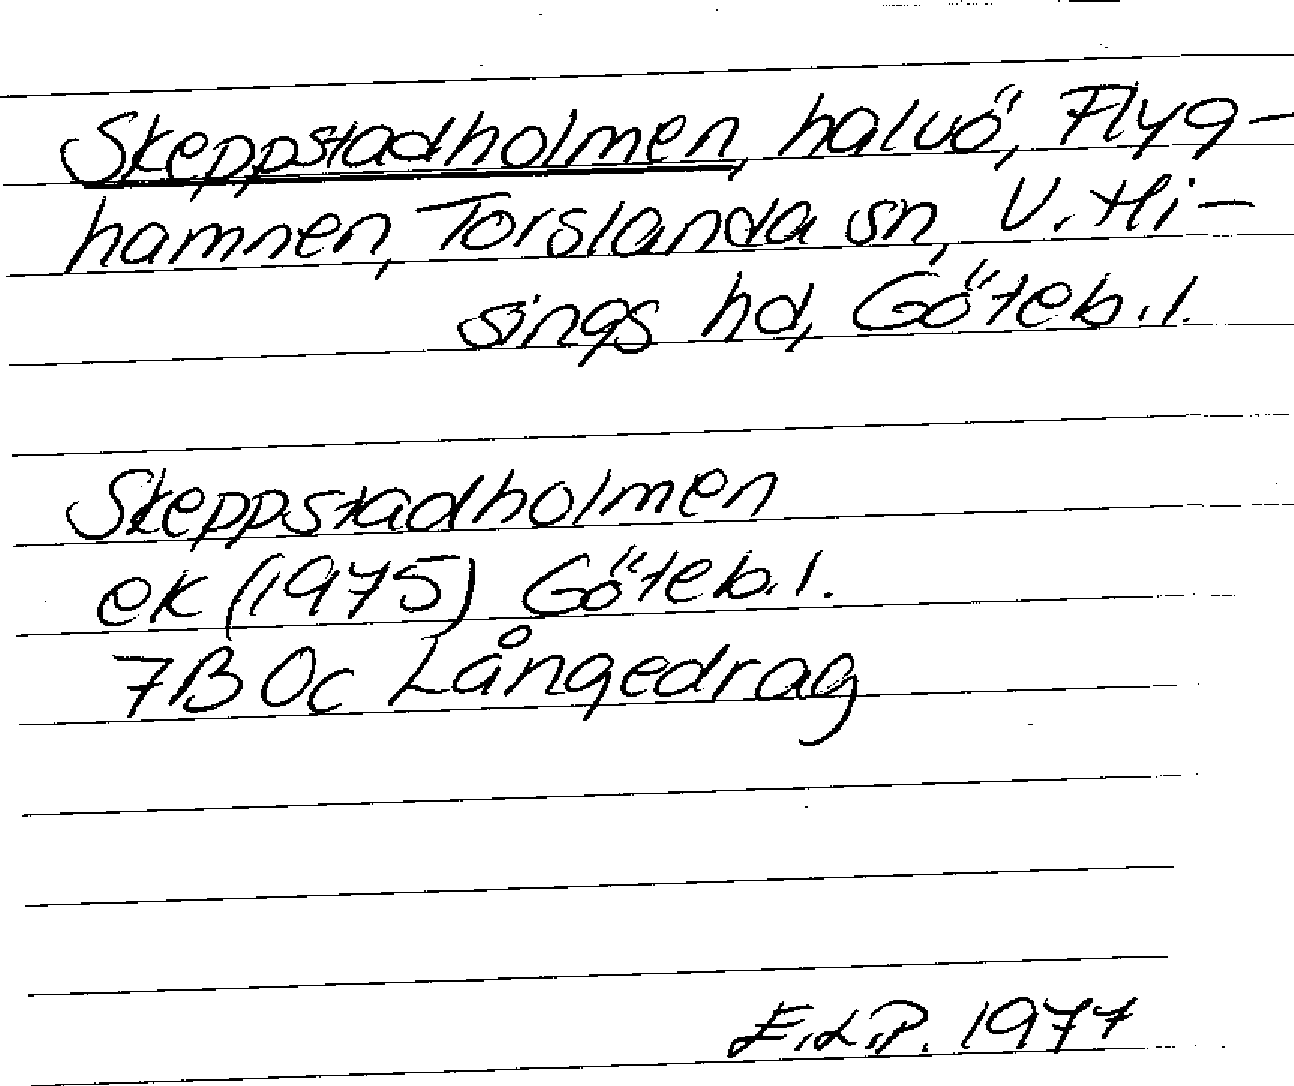 Skeppstadholmen, halvö, Flyg-
hamnen, Torslanda sn, V. Hi-
sings hd, Göteb. l.
Skeppstadholmen
ek (1975) Göteb. l.
7B 0c Långedrag
E.L.P. 1977